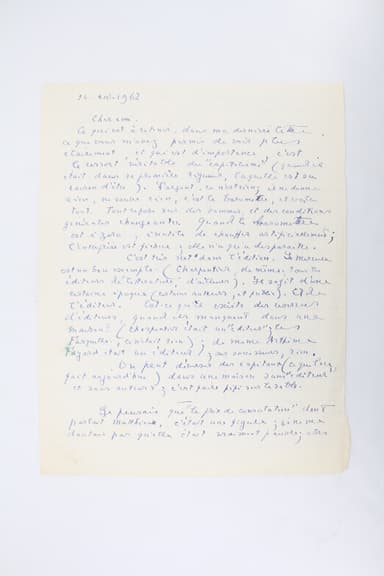 1962
Cher ami.
Ce qui est à retenir, dans ma dernière lettre,
ce que vous m'avez permis de voir plus
clairement et qui est d'importance c'est
le ressort véritable du "capitalisme" (quand il
était dans sa première vigueur, laquelle est en
). L'argent, en matière, ne donne
rien, ne crée rien, c'est le baromètre, et voilà
tout. Tout repose sur des hommes, et des conditions
générales changeantes. Quand le baromètre
est à zéro, inutile de chauffer artificiellement;
l'entreprise est fichue; elle n'a qu'à disparaître.
C'est très net dans l'édition. Le Mercure
est un bon exemple. (Charpentier, de même; tous les
éditeurs de littérature, d'ailleurs). Il s'agit d'une
certaine équipe (certains auteurs, et public). Et de
l'éditeur. Est-ce qu'il existe des
d'éditeurs, quand ils manquent dans une
maison? (Charpentier était un éditeur; les
Fasquelle, ce n'était rien); de même Arthème
Fayard était un éditeur; ses successeurs, rien.
On peut dépenser des capitaux (ce qu'on
fait aujourd'hui) dans une maison sans "éditeur"
et sans auteurs; c'est faire pipi sur le sable.
Je pensais que "le prix de consolation" dont
parlait Matthieu, c'était une figure; je ne me
doutais pas qu'elle était vraiment